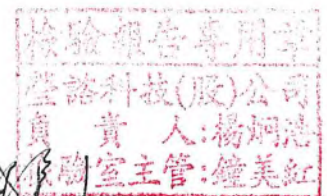 檢驗報告專用章
瑩諮科技(股)公司
負責人:楊炯浩
驗室主管:鐘美紅